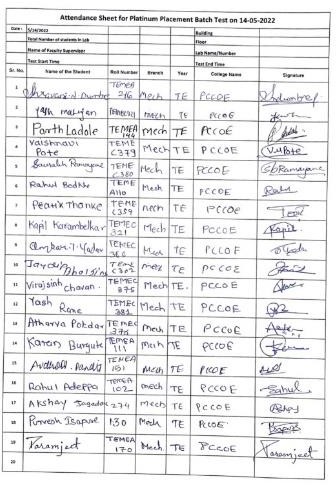 Attendance Sheet for Platinum Placement Batch Test on 14-05-2022
Date: 5/14/2022 Building
Total Number of students in Lab Floor
Name of Faculty Supervisor Lab Name/Number
Test Start Time Test End Time
Sr. No. Name of the Student Roll Number Branch Year College Name Signature
1 TEMEA 216 Mech TE PCCOE
2 Yash Mahajan Mech TE PCCOE
3 Parth Ladole TEMEA 144 Mech TE PCCOE
4 Vaishnavi Pote TEMEC379 Mech TE PCCOE VuPote
5 Saurabh Ramayane TEMEC380 Mech TE PCCOE SbRamayane
6 Rahul Bedke TEMEA110 Mech TE PCCOE
7 Pratik Thanke TEMEC389 mech TE PCCOE
8 Kapil Karambelkar TEMEC 321 Mech TE PCCOE Kapil
9 Omkar.T.Yadav TEMEC TE PCCOE
10 Jaydip TEMEC302 TE PCCOE
11 Virajsinh chavan. TEMEC 375 Mech TE. PCCOE
12 Yash Rane TEMEC 381 Mech TE PCCOE
13 Atharva Potdar TEMEC 376 Mech TE PCCOE
14 Karan Burgute TEMEA 111 Mech TE PCCOE
15 TEMEA 151 Mech TE PCCOE
16 Rahul Adeppa TEMEA 102 mech TE PCCOE Rahul
17 Akshay Jagadar 274 Mech TE PCCOE
18 Purvesh Isapure 130 Mech TE PCCOE
19 Paramjeet TEMEA 170 Mech TE PCCOE Paramjeet
20